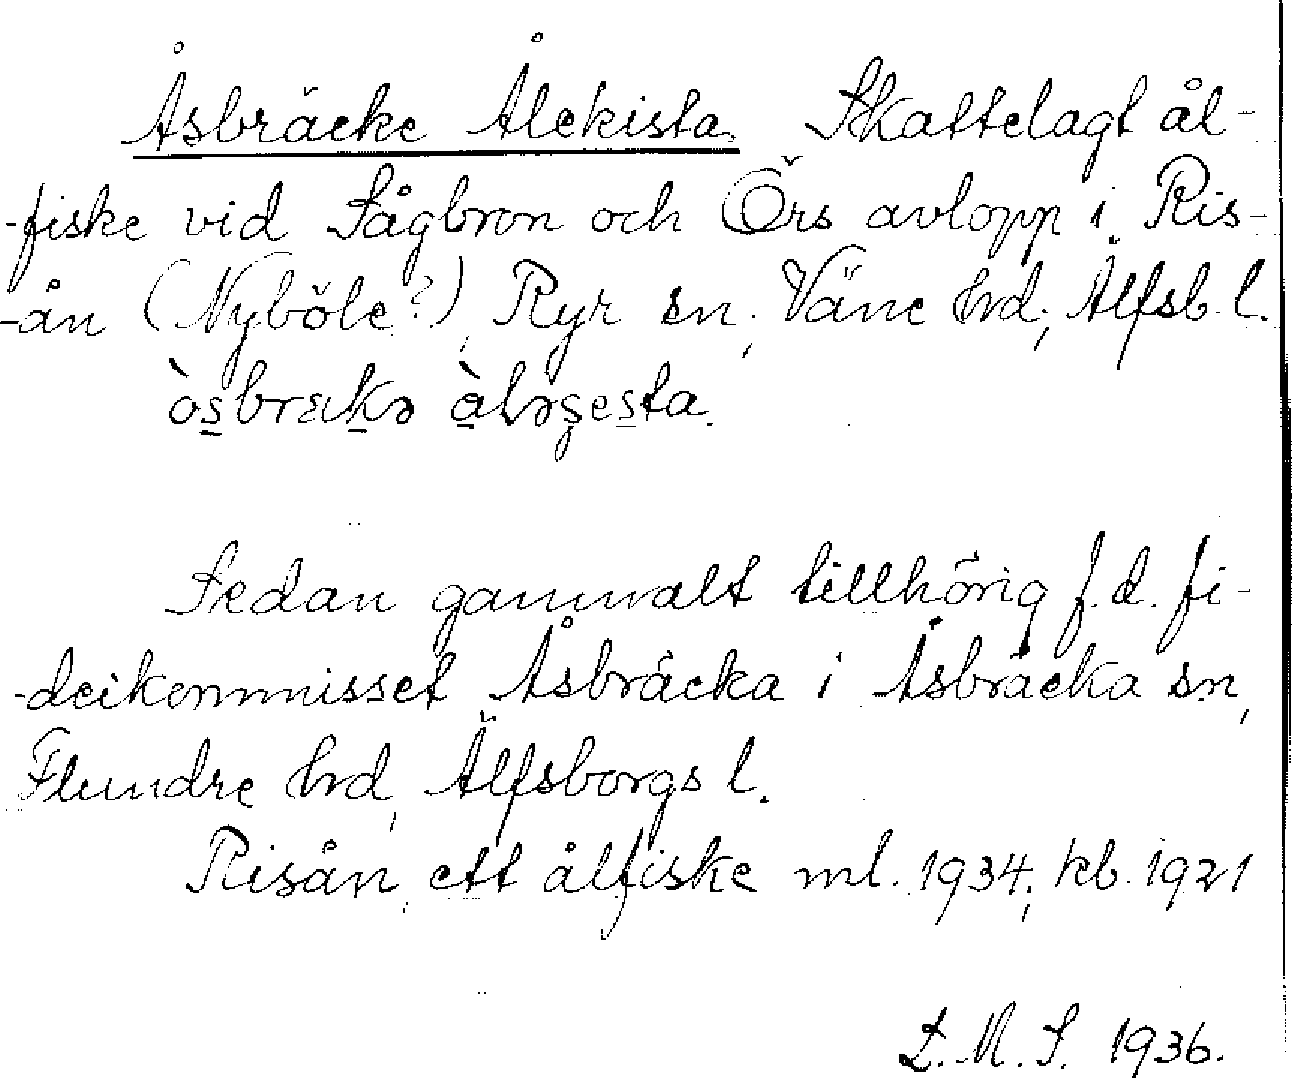 Åsbräcke Ålekista. Skattelagt ål-
-fiske vid Sågbron och Örs avlopp i Ris-
-ån (Nyböle?), Ryr sn, Väne hd, Älfsb. l.
òsbrækə àləʂesta.
Sedan gammalt tillhörig f.d. fi-
-deikommisset Åsbräcka i Åsbräcka sn,
Flundre hd, Älfsborgs l.
Risån, ett ålfiske ml. 1934, kb. 1921
L.M.S. 1936.